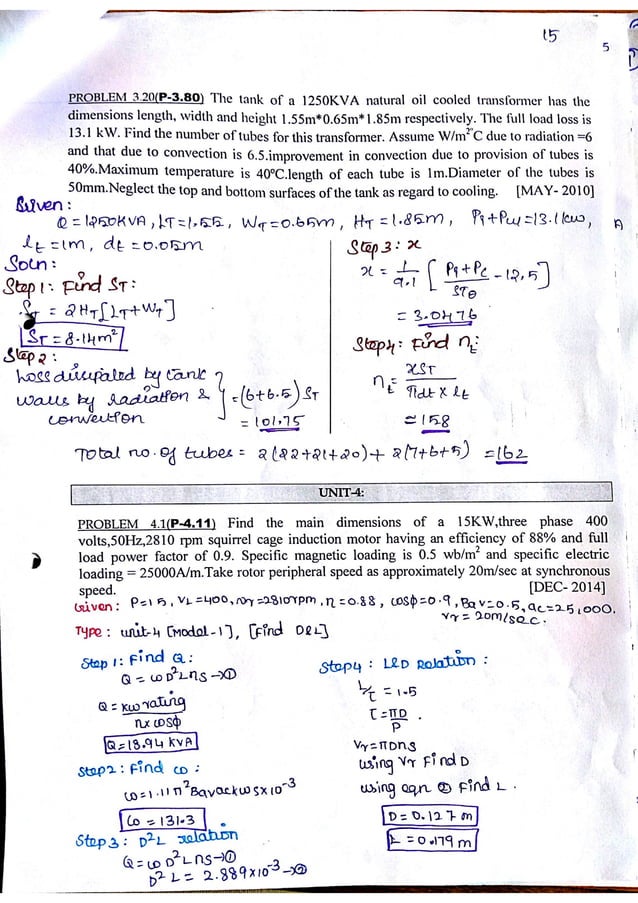 15
5
PROBLEM 3.20(P-3.80) The tank of a 1250KVA natural oil cooled transformer has the
dimensions length, width and height 1.55m*0.65m*1.85m respectively. The full load loss is
13.1 kW. Find the number of tubes for this transformer. Assume W/m²°C due to radiation =6
and that due to convection is 6.5.improvement in convection due to provision of tubes is
40%.Maximum temperature is 40⁰C.length of each tube is 1m.Diameter of the tubes is
50mm.Neglect the top and bottom surfaces of the tank as regard to cooling. [MAY- 2010]
Given :
Q = 1250KVA, LT = 1.55, WT = 0.65m, HT = 1.85m, Pi + Pcu = 13.1kw,
lt = 1m, dt = 0.05m
Soln :
Step 1 : Find ST :
ST = 2HT[LT+WT]
ST = 8.14m²
Step 2 :
Loss dissipated by tank
walls by Radiation &
convection
} = (6+6.5) ST
= 101.75
Step 3 : x
x = 1/9.1 [ Pi+Pc / STθ - 12.5 ]
= 3.0476
Step 4 : Find nt :
nt = xST / πdt × lt
≃ 158
Total no. of tubes = 2(22+21+20) + 2(7+6+5) = 162
UNIT-4:
PROBLEM 4.1(P-4.11) Find the main dimensions of a 15KW,three phase 400
volts,50Hz,2810 rpm squirrel cage induction motor having an efficiency of 88% and full
load power factor of 0.9. Specific magnetic loading is 0.5 wb/m² and specific electric
loading = 25000A/m.Take rotor peripheral speed as approximately 20m/sec at synchronous
speed. [DEC- 2014]
Given : P=15, VL=400, Nr=2810rpm, η=0.88, cosϕ=0.9, Bav=0.5, ac=25,000.
Vr = 20m/sec.
Type : unit-4 [Model-1], [Find D&L]
Step 1 : Find Q :
Q = co D²Lns → ①
Q = kw rating / η x cosϕ
Q = 18.94 KVA
Step2 : Find co :
co = 1.11π² Bav ac kws x 10⁻³
co = 131.3
Step 3 : D²L relation
Q = co D²Lns → ①
D²L = 2.889x10⁻³ → ②
Step4 : L&D Relation :
L/τ = 1.5
τ = πD / P .
Vr = πDns
using Vr Find D
using eqn ② Find L .
D = 0.127 m
L = 0.179 m